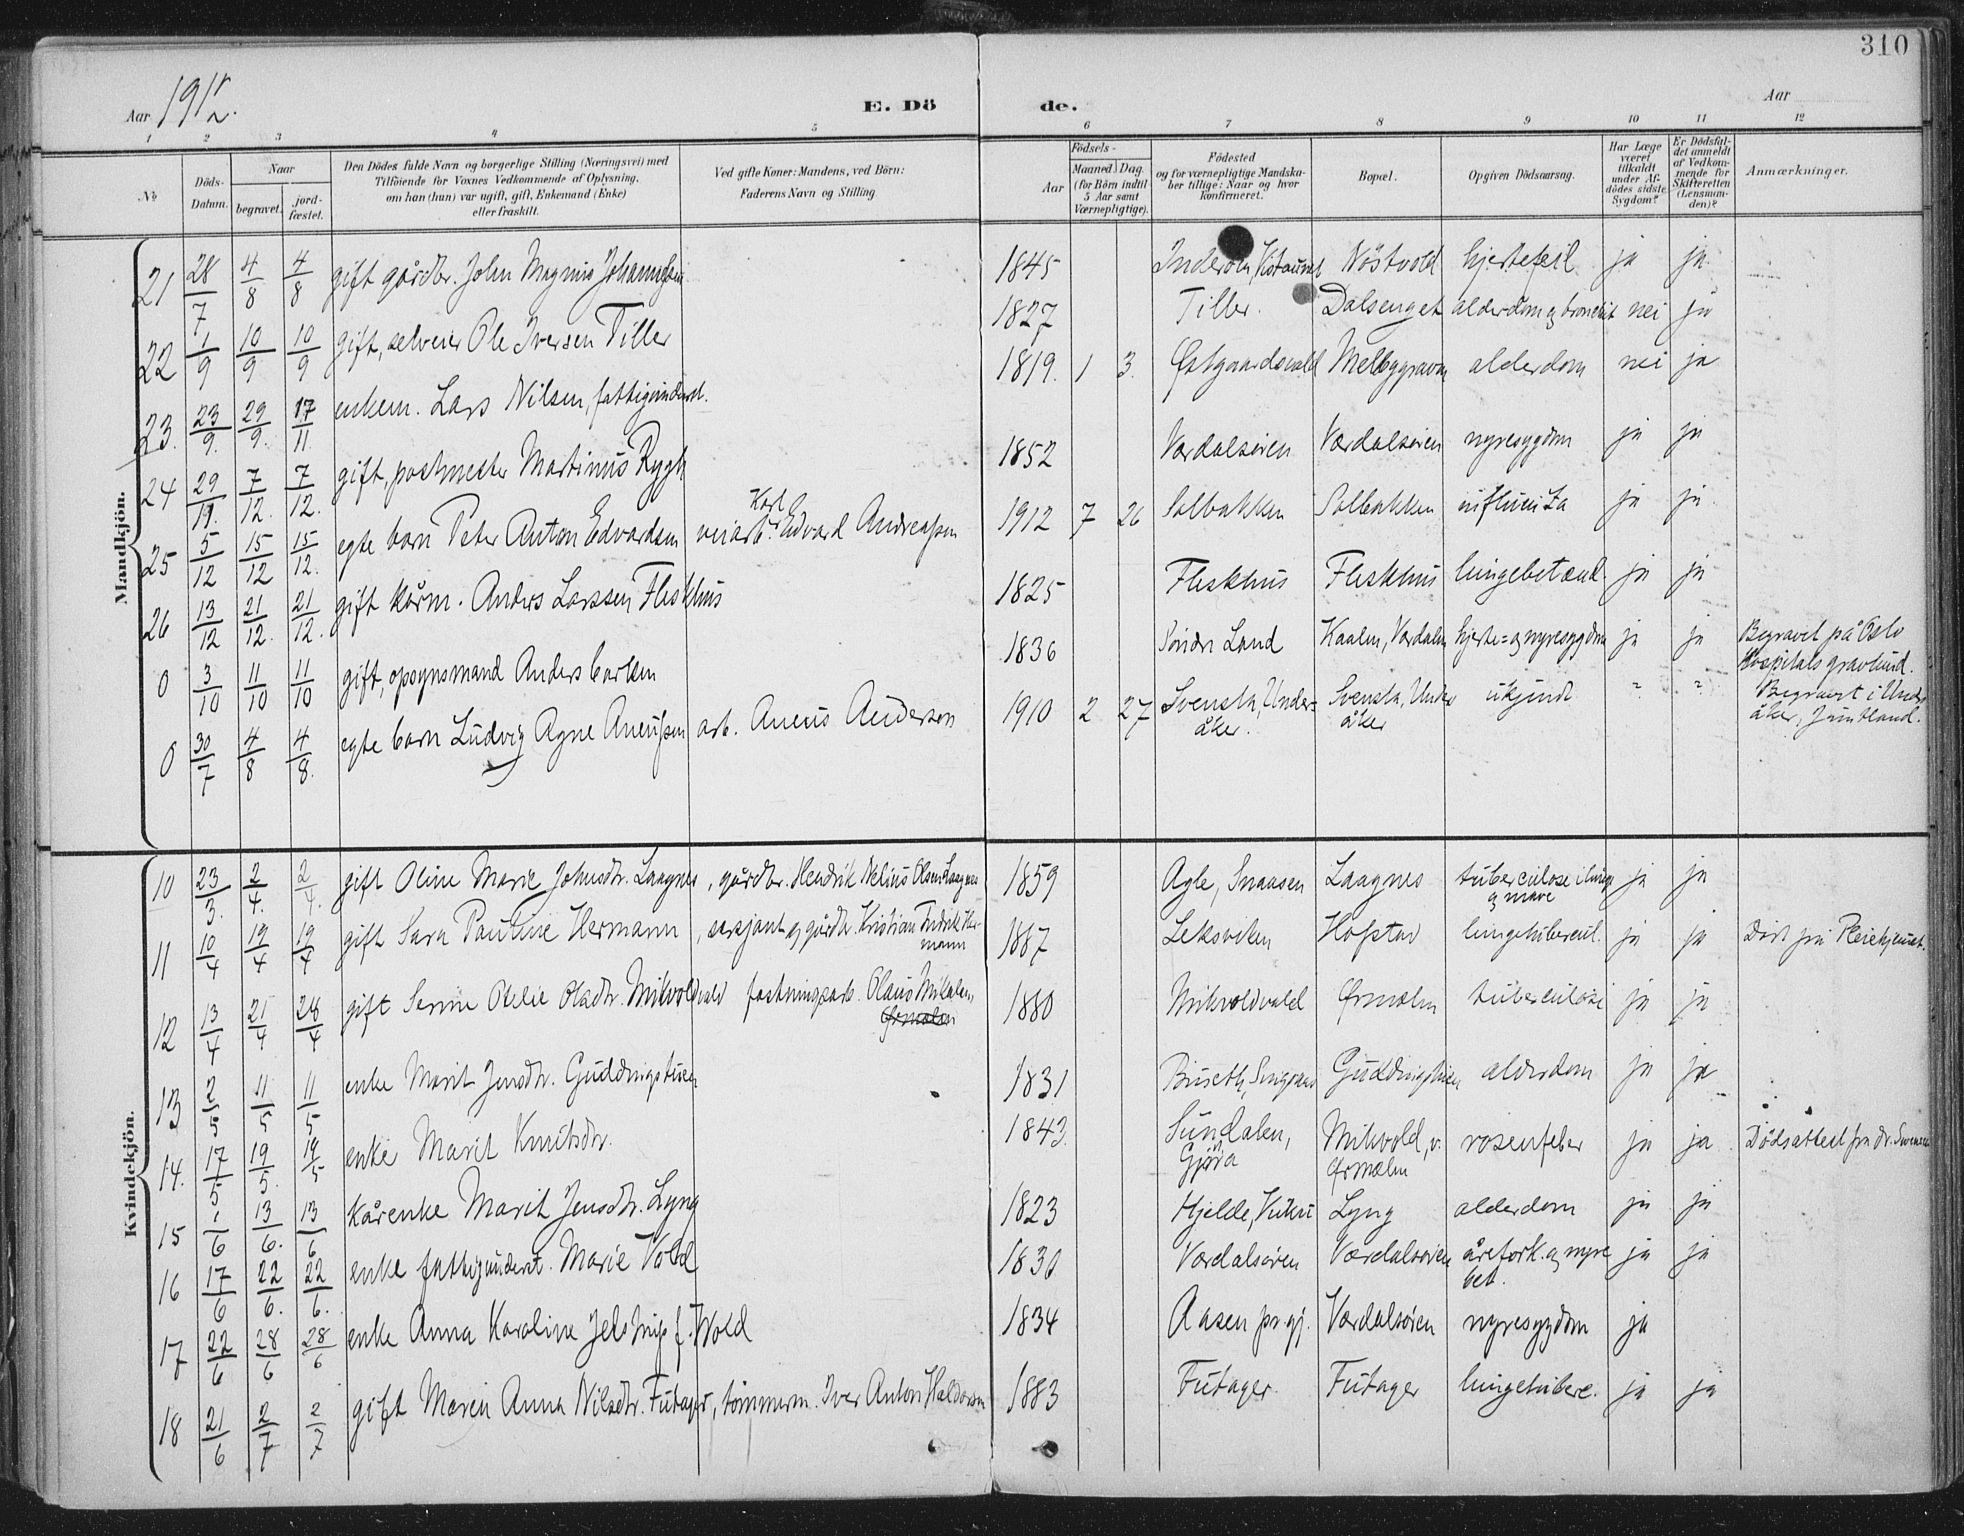 310
Aar 1912.
E. Dö de.
Aar
1 2 3 4 5 6 7 8 9 10 11 12
No
Döds-Datum.
Naar
begravet.
jord-fæstet.
Den Dödes fulde Navn og borgerlige Stilling (Næringsvei) med
Tilföiende for Voxnes Vedkommende af Oplysning,
om han (hun) var ugift, gift, Enkemand (Enke)
eller fraskilt.
Ved gifte Koner: Mandens, ved Börn:
Faderens Navn og Stilling.
Födsels-
Aar
Maaned. Dag.
(for Börn indtil
5 Aar samt
Værnepligtige).
Födested
og for værnepligtige Mandska-
ber tillige: Naar og hvor
konfirmeret.
Bopæl.
Opgiven Dödsaarsag.
Har Læge
været
tilkaldt
under Af-
dödes sidste
Sygdom?
Er Dödsfal-
det anmeldt
af Vedkom-
mende for
Skifteretten
(Lensman-
den)?
Anmærkninger.
Mandkjön.
21 28/7 4/8 4/8 gift gårdbr. John Magnus Johannesen 1845 Inderöen, Nöstvold hjertefeil ja ja.
22 1/9 10/9 10/9 gift, selveier Ole Iversen Tiller 1827 Tiller. Dalsenget alderdom og bronchit nei ja
23. 23/9. 29/9. 17/11 enkem. Lars Nilsen, fattigunderst. 1819. 1 3. Østgaardsvald Melbygraven alderdom nei ja
24 29/11. 7/12. 7/12. gift, postmester Martinus Rygh 1852 Værdalsøren Værdalsøren nyresygdom ja ja
25 5/12 15/12 15/12. egte barn Peter Anton Edvardsen veiarb. Karl Edvard Andreassen 1912 7 26 Solbakken Solbakken influenza ja ja
26 13/12 21/12. 21/12. gift kårm. Anders Larssen Fleskhus 1825 Fleskhus Fleskhus lungebetænd. ja ja
0 3/10 11/10 11/10 gift, opsynsmand Anders Carlsen 1836 Land Kaalen, Værdalen hjerte= og nyresygdom ja ja Begravet på Oslo
Hospitals gravlund.
0 30/7 4/8 4/8. egte barn Ludvig Agne Aneussen arb. Aneus Anderson 1910 2 27 Svensta, Under=
åker. Svensta, Under
åker ukjendt " " Begravet i Under
åker, Jämtland.
Kvindekjön.
10 23/3. 2/4. 2/4. gift Oline Marie Johnsdtr. Laagnes, gårdbr. Hendrik Nelius Olsen Laagnes 1859 Agle, Snaasen Laagnes tuberculose i lunge
og mave ja ja
11 10/4 19/4 19/4 gift Sara Pauline Hermann, sersjant og gårdbr. Kristian Fredrik Her-
mann 1887 Leksviken Hofstad lungetubercul. ja ja Død på Pleiehjemmet.
12 13/4 21/4 28/4 gift Serine Otelie Olsdtr. Mikvoldvald fæstningsarb. Olaus Mikalsen,
Ørmelen 1880 Mikvoldvald Ørmelen tuberculose ja ja
13 2/5 11/5 11/5 enke Marit Jensdtr. Guddingstuen 1831 Guddingstuen alderdom ja ja
14. 17/5 19/5. 19/5 enke Marit Knutsdtr. 1843. Sundalen,
Gjøra Mikvold, v.
Ørmelen rosenfeber ja ja Dödsattest fra dr.
15 1/6 13/6. 13/6 kårenke Marit Jensdtr. Lyng 1823 Hjelde, Lyng alderdom ja ja
16 17/6 22/6. 22/6. enke fattigunderst. Marie Vold 1830 Værdalsøren Værdalsøren årefork. og nyre
bet. ja ja
17 22/6 28/6 28/6 enke Anna Karoline f. Wold 1834 Aasen pr.gj. Værdalsøren nyresygdom ja
18 21/6 2/7 2/7 gift Maren Anna Nilsdtr. Futager, tömmerm. Iver Anton Haldorsen 1883 Futager. Futager lungetuberc. ja ja